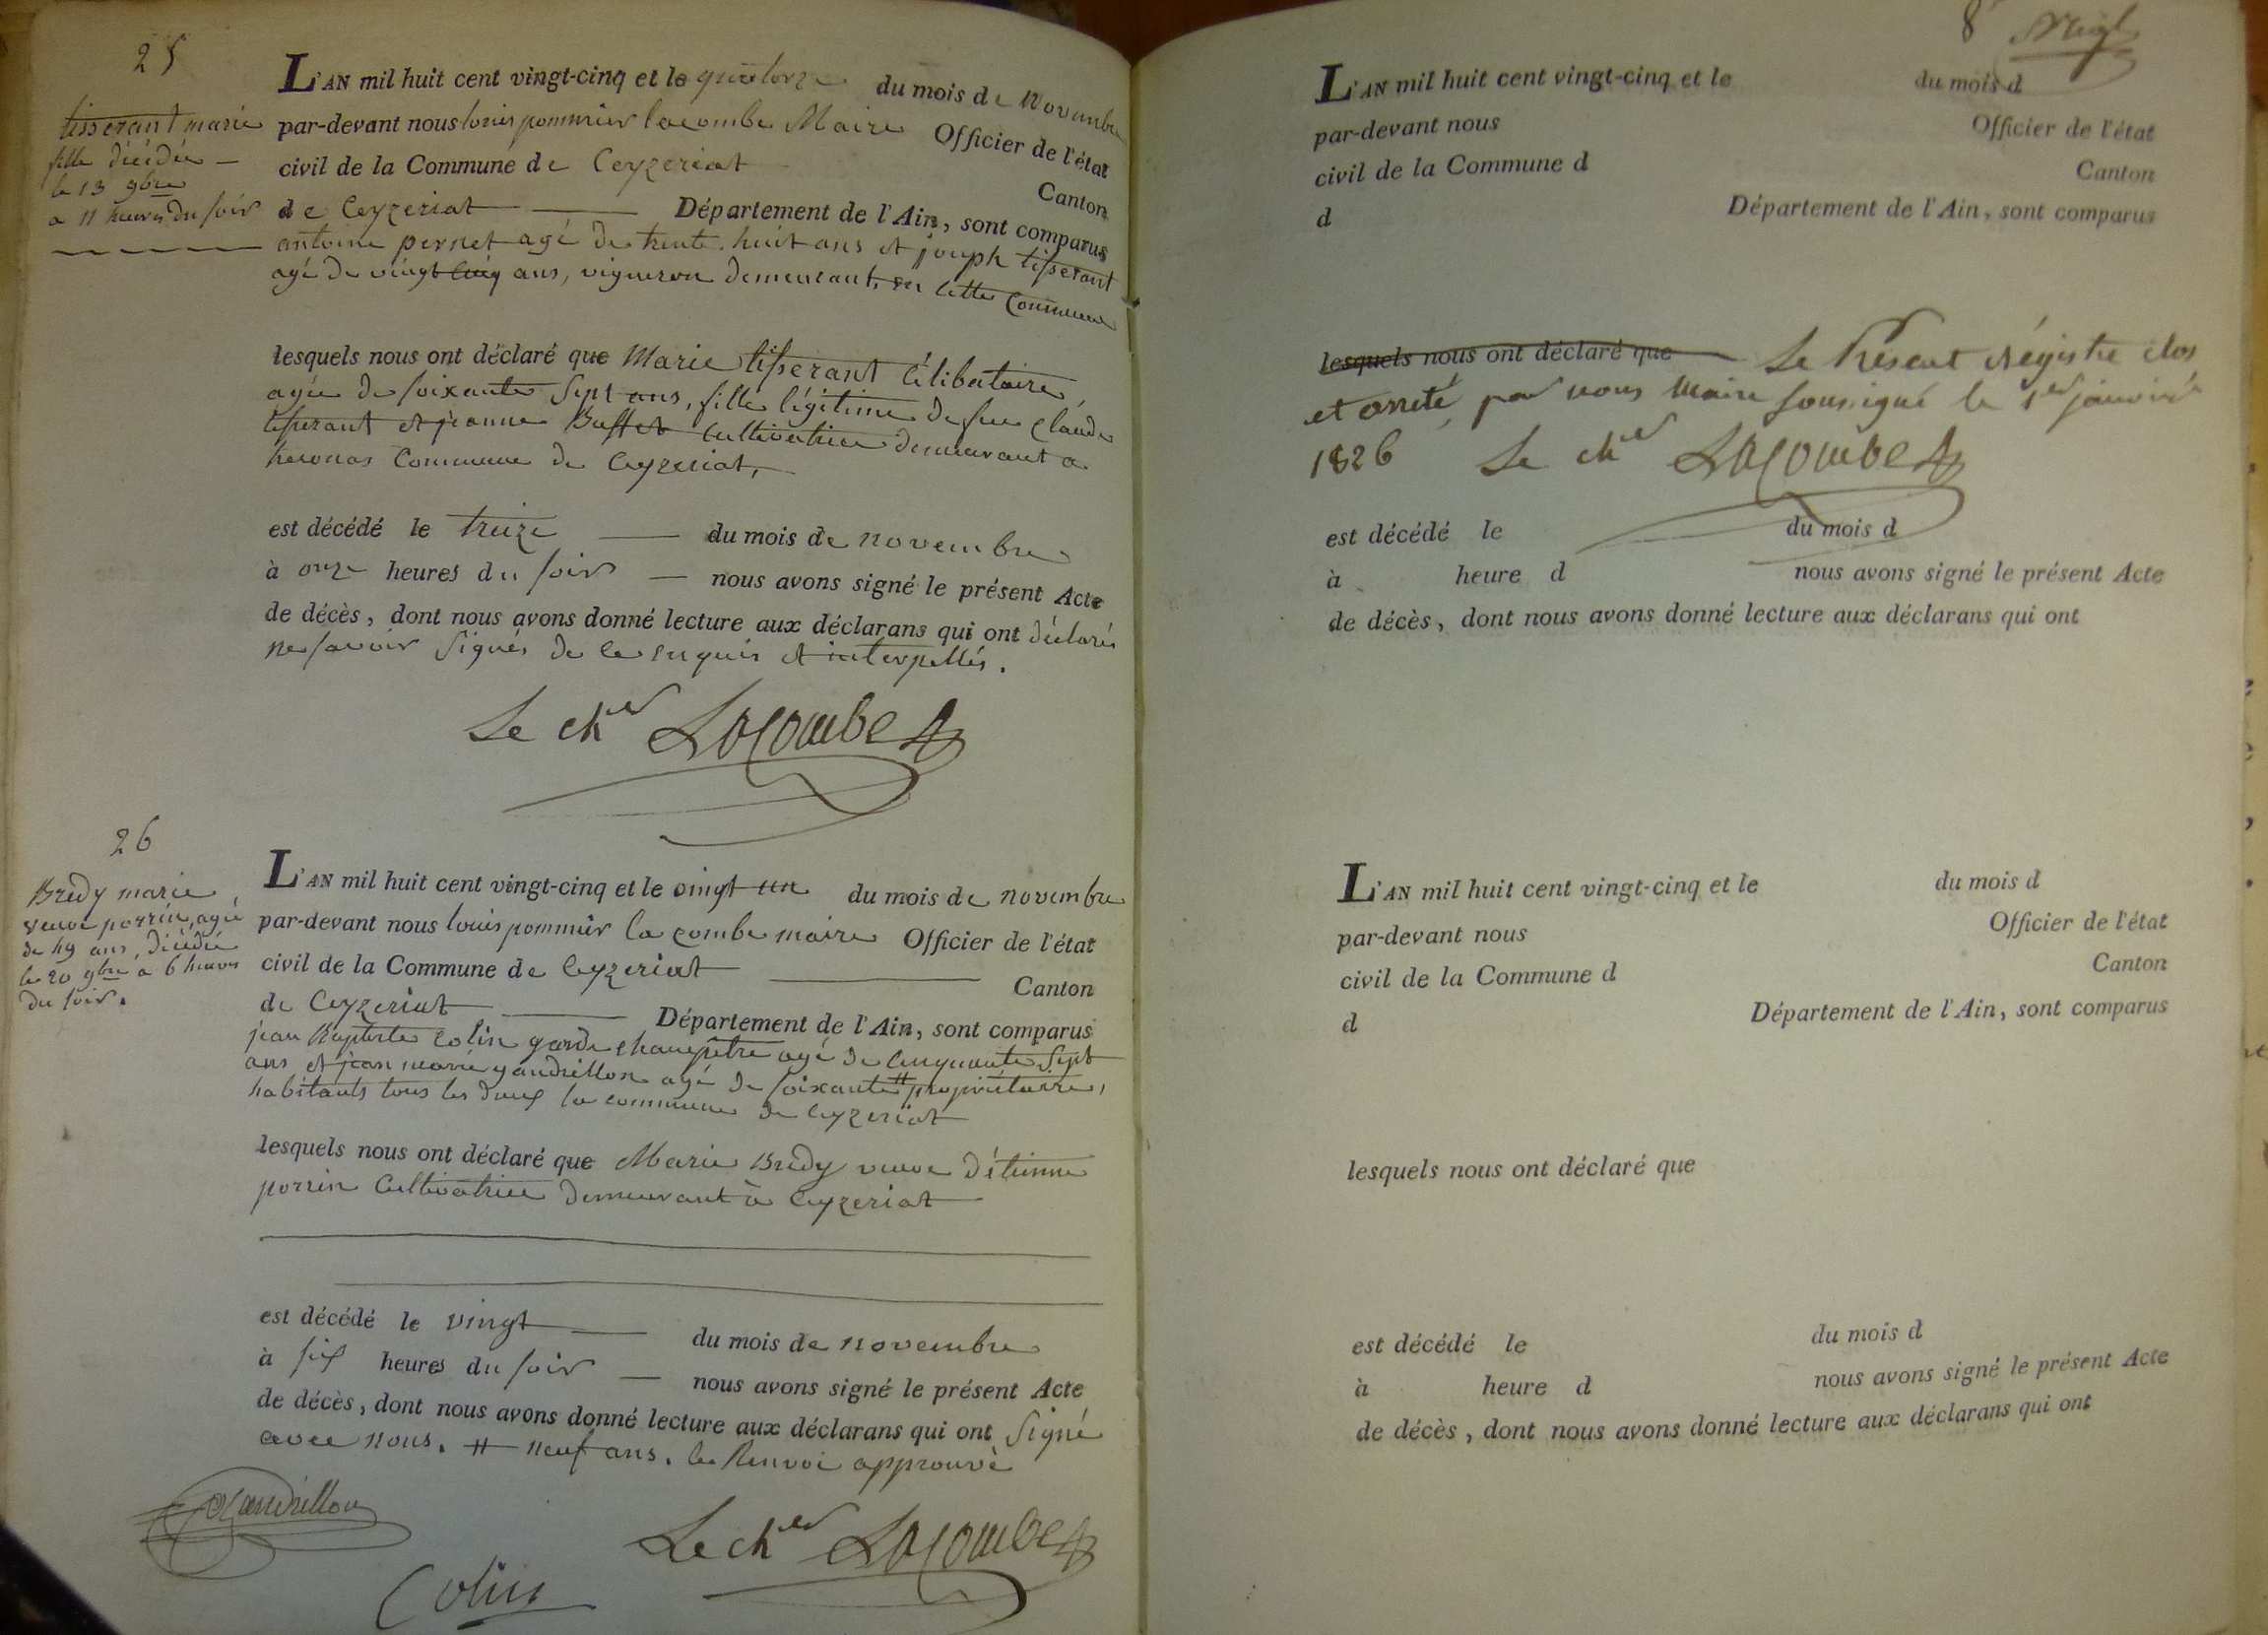 25
tisserant marie
fille décédée
le 13 9bre
a 11 heures du soir
L'AN mil huit cent vingt-cinq et le quatorze du mois de Novembre
par-devant nous louis pommier lacombe Maire Officier de l'état
civil de la Commune de Ceyzeriat Canton
de Ceyzeriat Département de l'Ain, sont comparus
antoine pernet agé de trente huit ans et joseph tisserant
agé de vingt cinq ans, vigneron demeurant en cette Commune
lesquels nous ont déclaré que Marie tisserant Célibataire
agée de soixante sept ans, fille légitime de feu claude
tisserant et jeanne Buffet Cultivatrice demeurant a
Commune de Ceyzeriat,
est décédé le treize du mois de novembre
à onze heures du soir nous avons signé le présent Acte
de décès, dont nous avons donné lecture aux déclarans qui ont déclarés
ne savoir Signés de ce enquis et interpellés.
Le cher Lacombe
26
Bredy marie
veuve perrin, agé
de 49 ans, décédée
le 20 9bre a 6 heures
du soir.
L'AN mil huit cent vingt-cinq et le vingt un du mois de novembre
par-devant nous louis pommier la combe maire Officier de l'état
civil de la Commune de Ceyzeriat Canton
de Ceyzeriat Département de l'Ain, sont comparus
jean Baptiste Colin garde champêtre agé de Cinquante Sept
ans et jean marie gandrillon agé de soixante # propriétaire,
habitants tous les deux la commune de Ceyzeriat
lesquels nous ont déclaré que Marie Bredy veuve d'étienne
perrin Cultivatrice demeurant à Ceyzeriat
est décédé le vingt du mois de novembre
à six heures du soir nous avons signé le présent Acte
de décès, dont nous avons donné lecture aux déclarans qui ont Signé
avec nous. # neuf ans. le Renvoi approuvé
Gandrillon
Le cher Lacombe
Colin
8
L'AN mil huit cent vingt-cinq et le du mois d
par-devant nous Officier de l'état
civil de la Commune d Canton
d Département de l'Ain, sont comparus
lesquels nous ont déclaré que Le Présent Régistre clos
et arreté par nous Maire soussigné le 1er janvier
1826 Le cher Lacombe
est décédé le du mois d
à heure d nous avons signé le présent Acte
de décès, dont nous avons donné lecture aux déclarans qui ont
L'AN mil huit cent vingt-cinq et le du mois d
par-devant nous Officier de l'état
civil de la Commune d Canton
d Département de l'Ain, sont comparus
lesquels nous ont déclaré que
est décédé le du mois d
à heure d nous avons signé le présent Acte
de décès, dont nous avons donné lecture aux déclarans qui ont